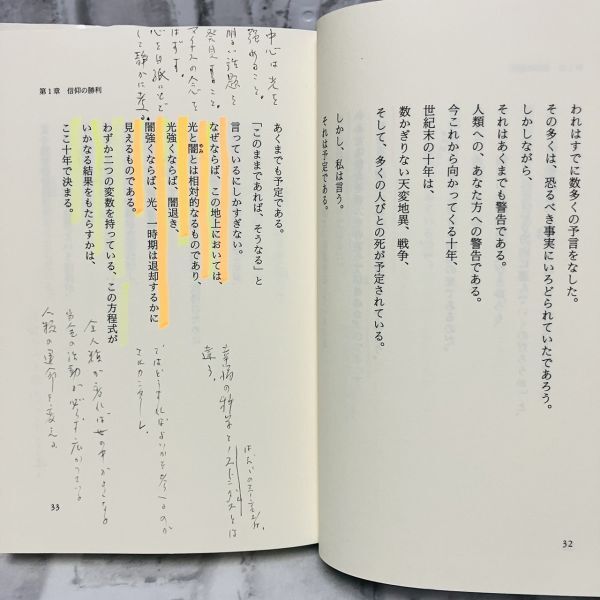 われはすでに数多くの予言をなした。
その多くは、恐るべき事実にいろどられていたであろう。
しかしながら、
それはあくまでも警告である。
人類への、あなた方への警告である。
今これから向かってくる十年、
世紀末の十年は、
数かぎりない天変地異、戦争、
そして、多くの人びとの死が予定されている。
しかし、私は言う。
それは予定である。
32
第1章 信仰の勝利
あくまでも予定である。
「このままであれば、そうなる」と
言っているにしかすぎない。
なぜならば、この地上においては、
光と闇とは相対的なるものであり、
光強くならば、闇退き、
闇強くならば、光、一時期は退却するかに
見えるものである。
わずか二つの変数を持っている、この方程式が
いかなる結果をもたらすかは、
ここ十年で決まる。
中心は光を
強めること。
明るい話題を
発見すること。
マイナスの念を
はずす。
心を白紙にもど
して静かに考える。
幸福の科学と
違う。
エルカンターレ
全人類が
人類の運命を変える
33